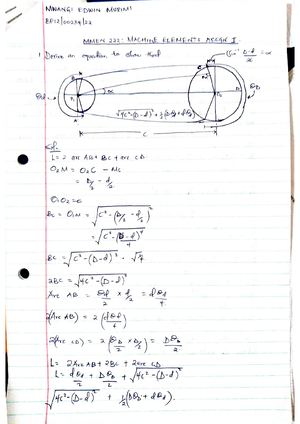 MWANGI EDWIN MUTIMI
BE12/00234/22
MMEN 222: MACHINE ELEMENTS ASSGN I
1. Derive an equation to show that
sin⁻¹ D-d/2c = α
√4C²-(D-d)² + ½(DθD + dθd)
C
Sol.
L = 2 arc AB + BC + arc CD
O2M = O2C - MC
= D/2 - d/2
O1O2 = C
BC = O1M = √C² - (D/2 - d/2)²
= √C² - (D-d)²/4
BC = √C² - (D-d)² · √4
2BC = √4C² - (D-d)²
Arc AB = θd/2 × d/2 = dθd/4
2(Arc AB) = 2(dθd/4)
2(Arc CD) = 2(θD/2 × D/2) = DθD/2
L = 2Arc AB + 2BC + 2arc CD
L = dθd/2 + DθD/2 + √4C² - (D-d)²
√4C² - (D-d)² + ½(DθD + dθd).